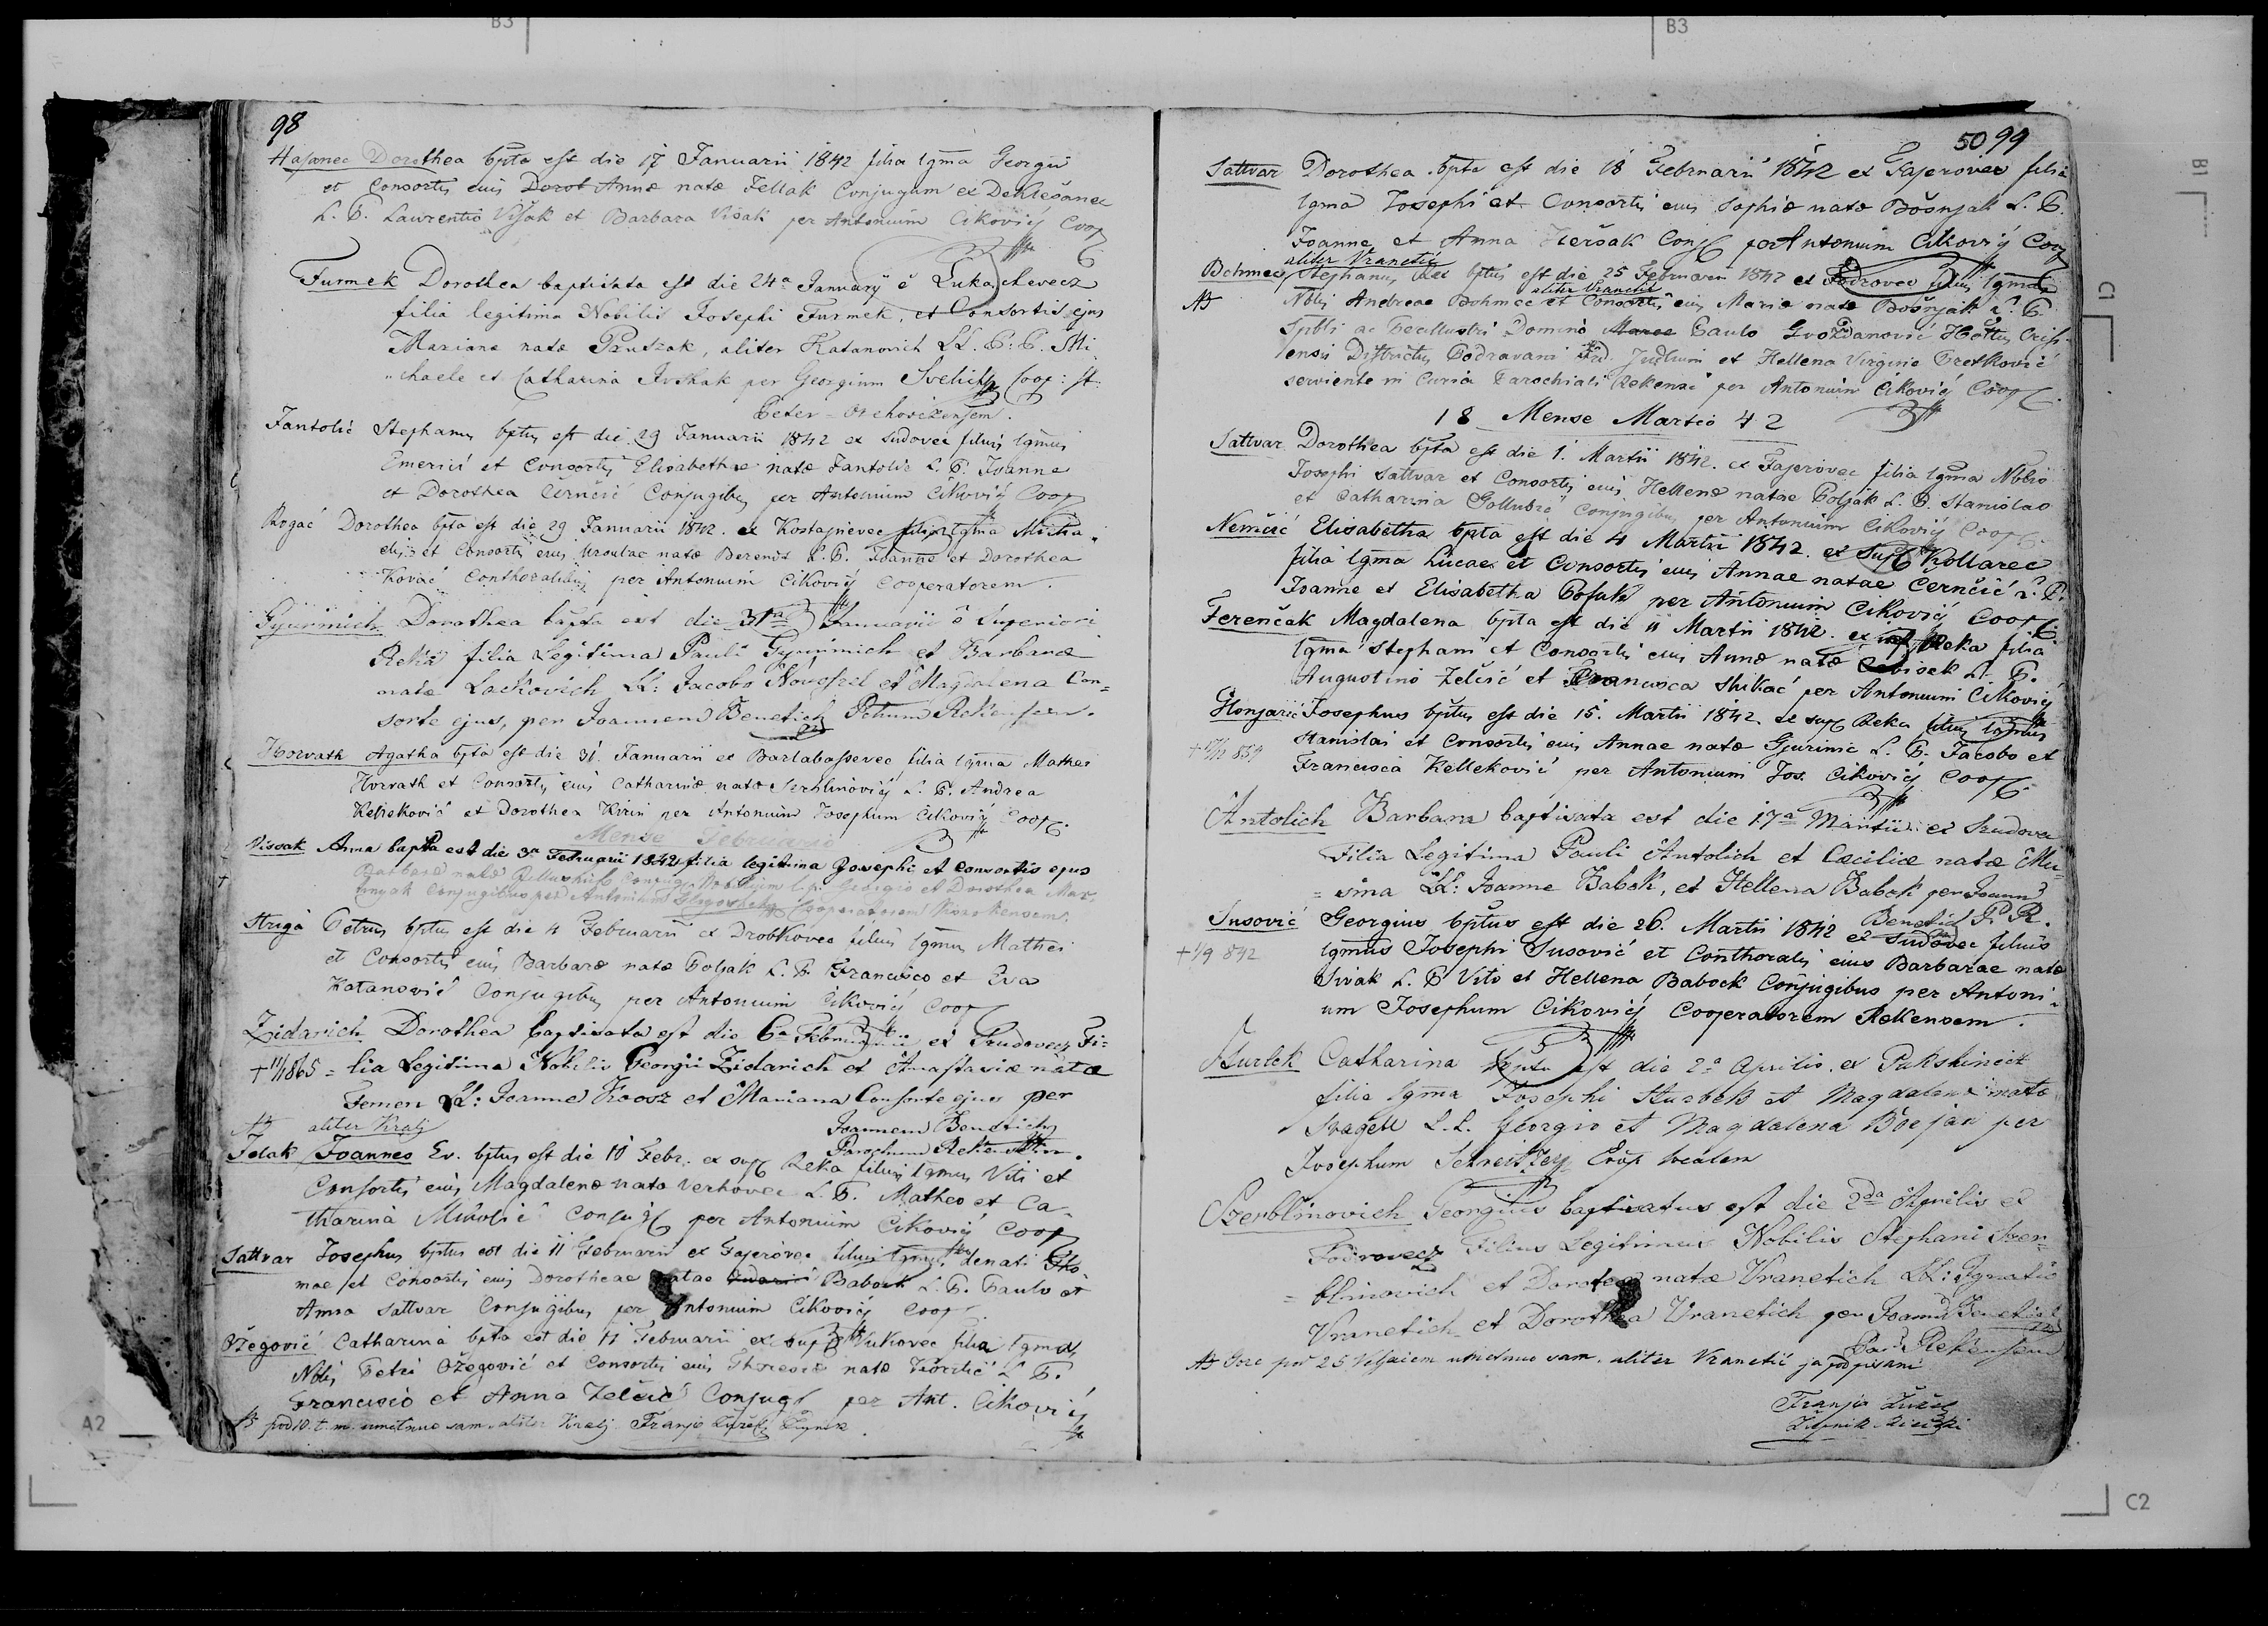 98
Hasanec Dorothea bpta est die 17 Januarii 1842 filia lgma Georgii
et Consortis eius Dorot Annæ natæ Jellak Conjugum ex Deklešanec
L. P. Laurentio Višak et Barbara Višak per Antonium Ciković Coop
Furmek Dorothea baptisata est die 24a Januarÿ è Lukachevecz
filia legitima Nobilis Josephi Furmek, et Consortis ejus
Mariana nata Prudzak, aliter Katanovich LL. P: P. Mi
chaele et Catharina Ivshak per Georgium Svelich Coop: St:
Peter-Orehovizensem.
Jantolić Stephanus bptus est die 29 Januarii 1842 ex Sudovec filius lgmus
Emerici et Consortis Elisabethæ natæ Jantolic L. P. Joanne
et Dorothea Cernčić Conjugibus per Antonium Ciković Coop
Rogač Dorothea bpta est die 29 Januarii 1842. ex Kostajnevec filia lgma Micha
elis et Consortis eius Ursulae natæ Berendt L. P. Joanne et Dorothea
Kovač Conthoralibus per Antonium Ciković Cooperatorem.
Gyurinich Dorothea bapta est die 31ma Januarii è Superiori
Reka filia Legitima Pauli Gyurinich et Barbaræ
natæ Lackovich LL: Jacobo Novoszel et Magdalena Con=
sorte ejus, per Joannem Benetich Pchum Rekensem.
Horvath Agatha bpta est die 31. Januarii ex Barlabassevec filia lgma Mathei
Horvath et Consortis eius Catharinæ natæ Serblinović L. P. Andrea
Kelleković et Dorothea Kirin per Antonium Josephum Ciković Coop.
Mense Februario
Vissak Anna bapta est die 3a Februarii 1842 filia legitima Josephi et consortis ejus
Barbaræ natæ Conjug. Nobilium l. p. Georgio et Dorothea Mar
Conjugibus per Antonium Cooperatorem
Striga Petrus bptus est die 4 Februarii ex Drobkovec filius lgmus Mathei
et Consortis eius Barbaræ natæ Poljak L. P. Francisco et Eva
Katanović Conjugibus per Antonium Ciković Coop
Zidarich Dorothea baptisata est die 6a Februarii ex Szudovecz Fi=
+ 11/1 865 =lia Legitima Nobilis Georgii Zidarich et Anastasiæ natæ
Femen LL: Joanne Koosz et Mariana Consorte ejus per
NB aliter Kralj Joannem Benetich
Parochum Rekensem.
Jelak Joannes Ev. bptus est die 10 Febr. ex sup Reka filius lgmus Viti et
Consortis eius Magdalenæ nata Verhovec L. P. Matheo et Ca-
tharina Mikolić Conjug per Antonium Ciković Coop
Sattvar Josephus bptus est die 11 Februarii ex Gajerovec filius lgmus denati Tho
mae et Consortis eius Dorotheae natae Babock L. P. Paulo et
Anna Sattvar Conjugibus per Antonium Ciković Coop
Ožegović Catharina bpta est die 11 Februarii ex sup Vukovec filia lgma
Nblis Petri Ožegović et Consortis eius Theresiæ natæ L P.
Francisco et Anna Zelčić Conjug per Ant. Ciković
NB pod 10. t. m. umetnuo sam aliter Kralj Franjo Žužek Župnik
50 99
Sattvar Dorothea bpta est die 18 Februarii 1842 ex Gajerovec filia
lgma Josephi et Consortis eius Sophiæ natæ Bošnjak L. P.
Joanne et Anna Heršak Conj per Antonium Ciković Coop
aliter Vranetić
Bohmec Stephanus Rex bptus est die 25 Februarii 1842 ex Fodrovec filius lgmus
aliter Vranetić
NB Nblis Andreae Bohmec et Consortis eius Mariæ natæ Bošnjak L. P.
Spbli ac Perillustri Domino Marco Paulo Gvozdanović Cottus Crisi-
ensis Districtus Podravani Judlium et Hellena Virgine Cvetković
serviente in Curia Parochiali Rekensi per Antonium Ciković Coop
18 Mense Martio 42
Sattvar Dorothea bpta est die 1. Martii 1842. ex Gajerovec filia lgma Nblis
Josephi Sattvar et Consortis eius Hellenæ natae Poljak L. P. Stanislao
et Catharina Gollubić Conjugibus per Antonium Ciković Coop
Nemčić Elisabetha bpta est die 4 Martii 1842. ex Sup Kollarec
filia lgma Lucae et Consortis eius Annae natae Cernčić L. P.
Joanne et Elisabetha per Antonium Ciković Coop
Ferenčak Magdalena bpta est die 11 Martii 1842. ex inf Reka filia
lgma Stephani et Consortis eius Annæ natæ L. P.
Augustino Zelčić et Francisca Shikač per Antonium Ciković
Honjarić Josephus bptus est die 15. Martii 1842. ex sup Reka filius lgmus
Stanislai et Consortis eius Annae natæ Gjurinić L. P. Jacobo et
+ 17/12 859
Francisca Kelleković per Antonium Jos. Ciković Coop
Antolich Barbara baptisata est die 17a Martii ex Szudovec
Filia Legitima Pauli Antolich et Cæciliæ natæ Mu=
=sina LL: Joanne Babok, et Hellena Babok per Joann
Benetich P. R.
Susović Georgius bptus est die 26. Martii 1842 ex Sudovec filius
+ 1/9 842 lgmus Josephi Susović et Conthoralis eius Barbarae natæ
Sivak L. P. Vito et Hellena Babock Conjugibus per Antoni-
um Josephum Ciković Cooperatorem Rekensem.
Hurlek Catharina bpta est die 2a Aprilis ex Pukshinecz
filia lgma Josephi Hurlek et Magdalenæ natæ
Svagell L. L. Georgio et Magdalena per
Josephum Schreitzer Coop localem
Szerblinovich Georgius baptisatus est die 2da Aprilis ex
Fodrovecz Filius Legitimus Nobilis Stephani Szer=
=blinovich et Dorotea natæ Vranetich LL: Ignatio
Vranetich et Dorothea Vranetich per Joann Benetich
Par Rekensem
NB Gore pod 25 Veljačem umetnuo sam, aliter Vranetić ja podpisani
Franjo Žužek
Župnik Riečki